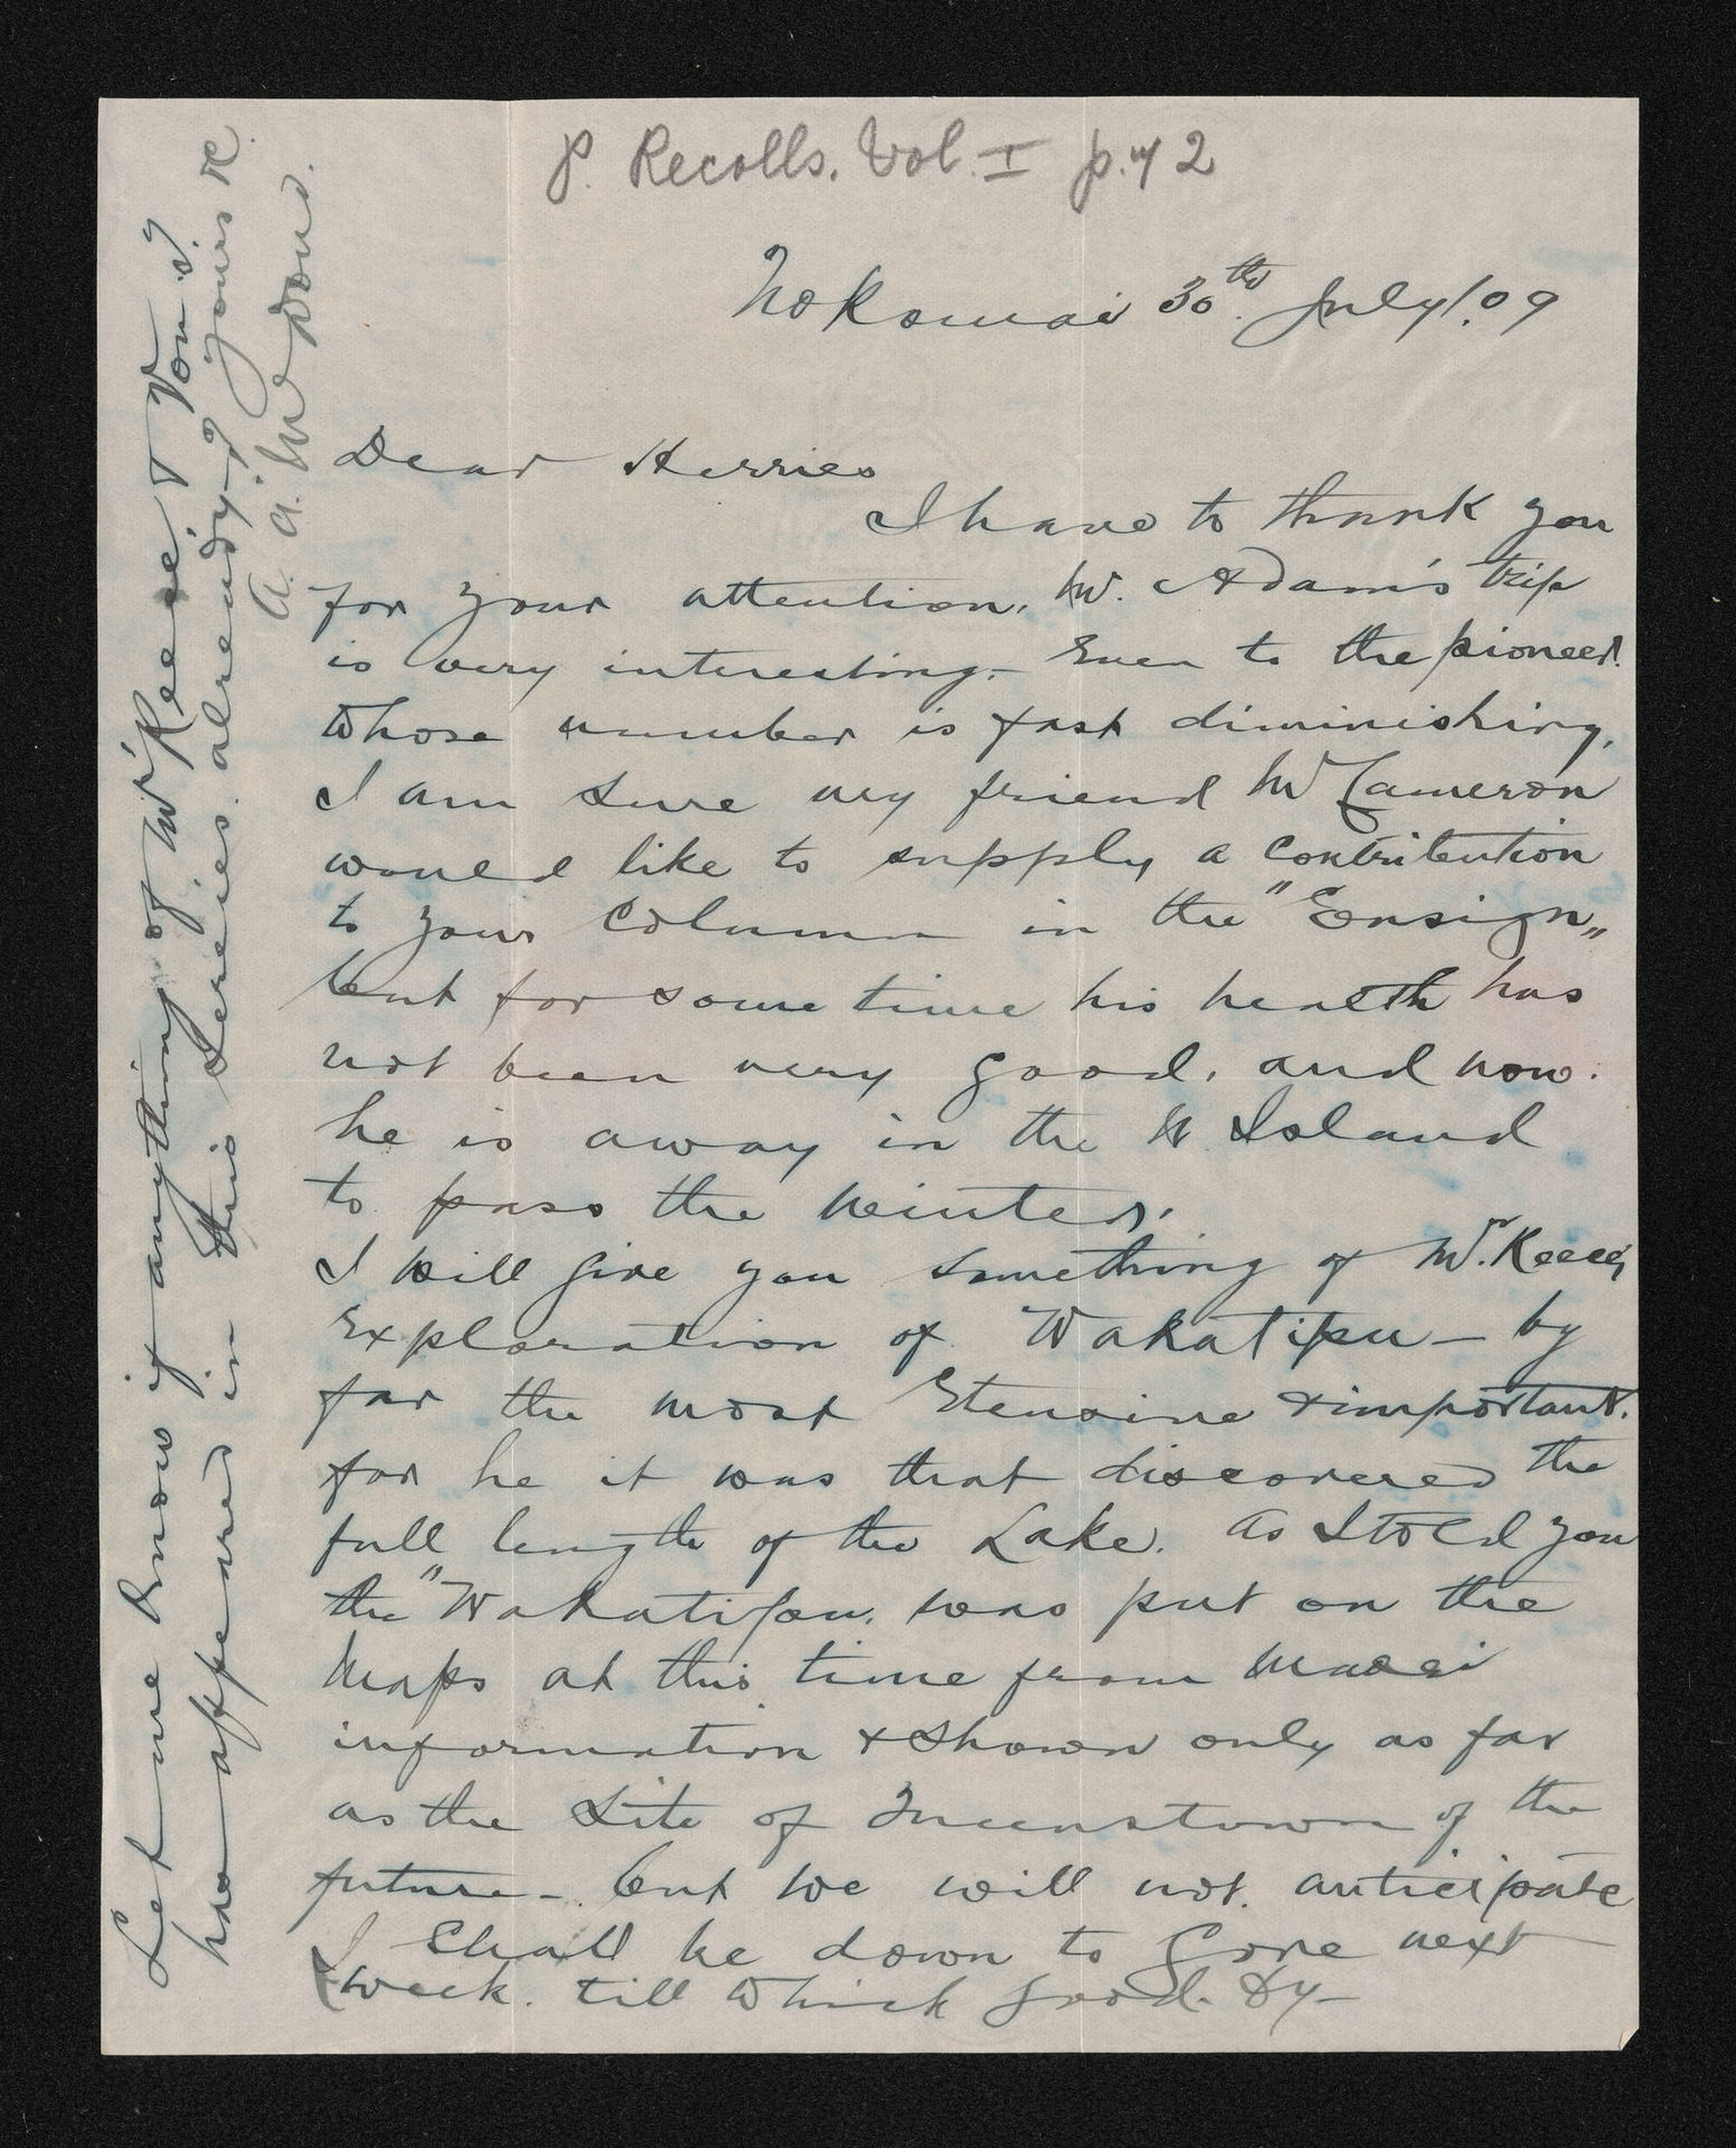 P. Recolls. Vol. I p. 42
Nokomai 30th July/.09
Dear Herries
I have to thank you
for your attention. Mr. Adam's trip
is very interesting. Even to the pioneer.
Whose number is fast diminishing.
I am sure my friend Mr Cameron
would like to supply a contribution
to your Column in the "Ensign"
but for some time his health has
not been very good, and now.
he is away in the N. Island
to pass the Winter.
I will give you something of Mr. Rees's
Exploration of Wakatipu - by
far the most Etensive & important.
for he it was that discovered the
full length of the Lake. As I told you
the "Wakatipu. was put on the
Maps at this time from Maori
information & Shown only as far
as the Site of Queenstown of the
future - but we will not. anticipate
I Shall be down to Gore next
week. till Which good-by -
Let me know if anything of Mr Rees & Von's
has appeared in this Series already - yours &c.